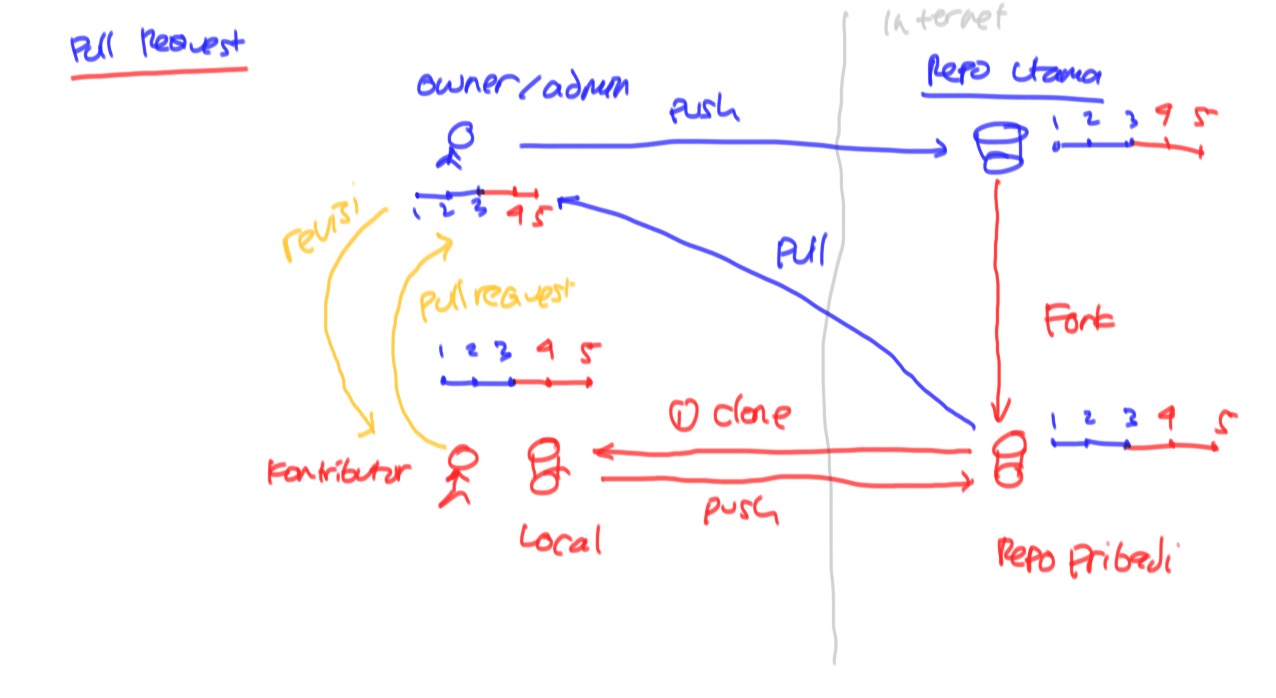 Pull Request
Internet
owner/admin
push
Repo Utama
1 2 3 4 5
1 2 3 4 5
revisi
Pull
pull request
Fork
1 2 3 4 5
① clone
1 2 3 4 5
Kontributor
push
Local
Repo Pribadi